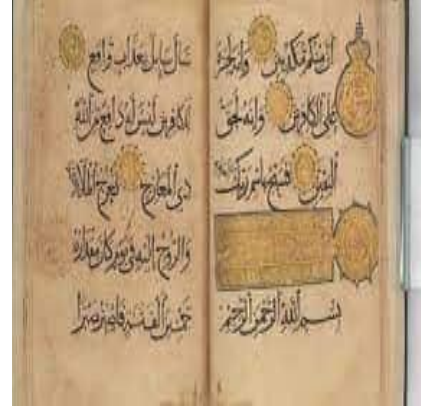 أن منكم مكذبين وإنه لحسرة
على الكافرين وإنه لحق
اليقين فسبح باسم ربك
بسم الله الرحمن الرحيم
سأل سائل بعذاب واقع
للكافرين ليس له دافع من الله
ذي المعارج تعرج الملائكة
والروح إليه في يوم كان مقداره
خمسين ألف سنة فاصبر صبرا